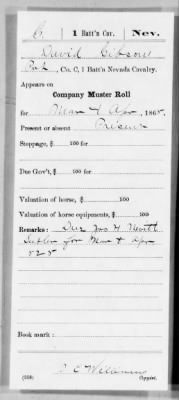 G | 1 Batt'n Cav. | Nev.
David Gibson
Pvt, Co. C, 1 Batt'n Nevada Cavalry.
Appears on
Company Muster Roll
for Mar & Apr, 1865.
Present or absent Present
Stoppage, $ 100 for
Due Gov't, $ 100 for
Valuation of horse, $ 100
Valuation of horse equipments, $ 100
Remarks: Due Jno H Nevitt
Sutler for Mar & Apr
525
Book mark:
(358) Copyist.